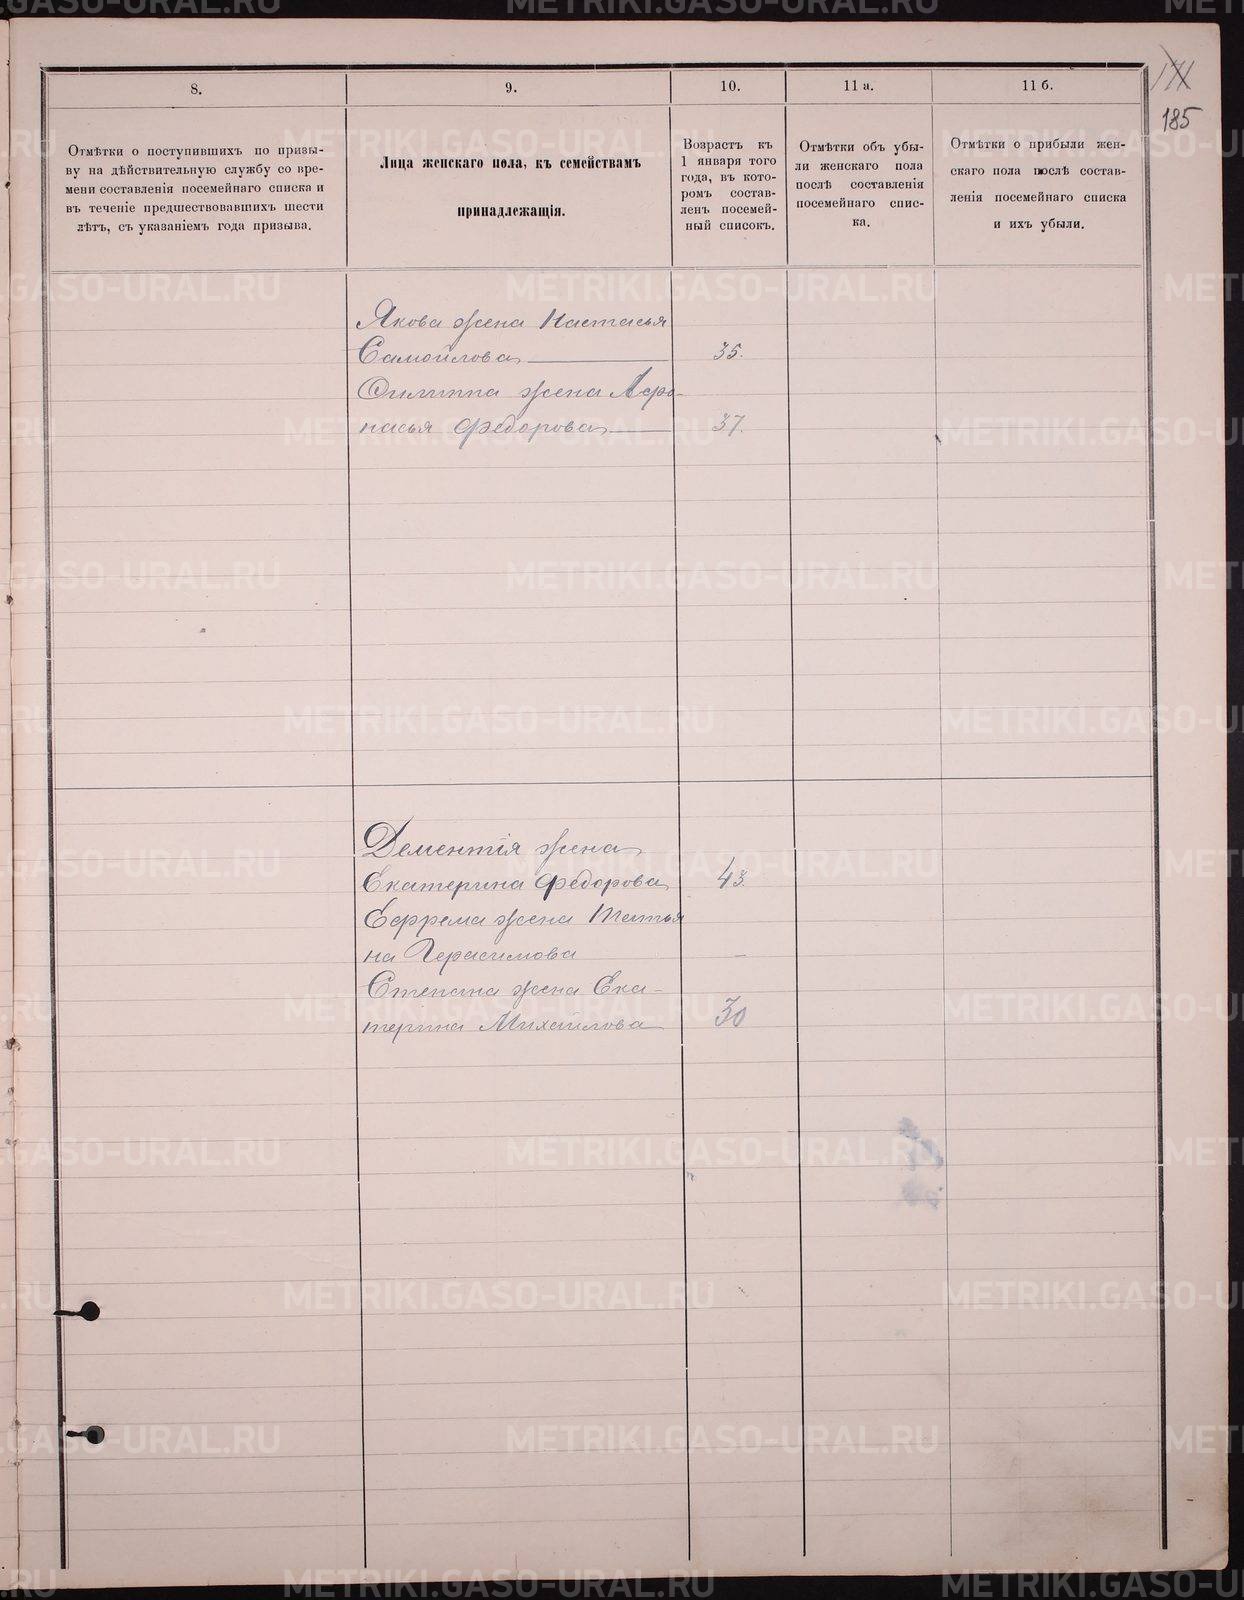 171
185
8.
9.
10.
11 а.
11 б.
Отмѣтки о поступившихъ по призы-
ву на дѣйствительную службу со вре-
мени составленія посемейнаго списка и
въ теченіе предшествовавшихъ шести
лѣтъ, съ указаніемъ года призыва.
Лица женскаго пола, къ семействамъ
принадлежащія.
Возрастъ къ
1 января того
года, въ кото-
ромъ состав-
ленъ посемей-
ный списокъ.
Отмѣтки объ убы-
ли женскаго пола
послѣ составленія
посемейнаго спис-
ка.
Отмѣтки о прибыли жен-
скаго пола послѣ состав-
ленія посемейнаго списка
и ихъ убыли.
Якова жена Настасья
Самойлова 35.
Филиппа жена Афо-
насья Федорова 37.
Дементія жена
Екатерина Федорова 43.
Ефрема жена Татья
на Герасимова —
Степана жена Ека-
терина Михайлова 30
METRIKI.GASO-URAL.RU